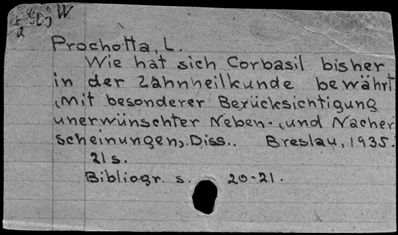 W
Prochotta, L.
Wie hat sich Corbasil bisher
in der Zahnheilkunde bewährt
(Mit besonderer Berücksichtigung
unerwünschter Neben-, und Nacher
scheinungen), Diss.. Breslau, 1935.
21 s.
Bibliogr. s. 20-21.